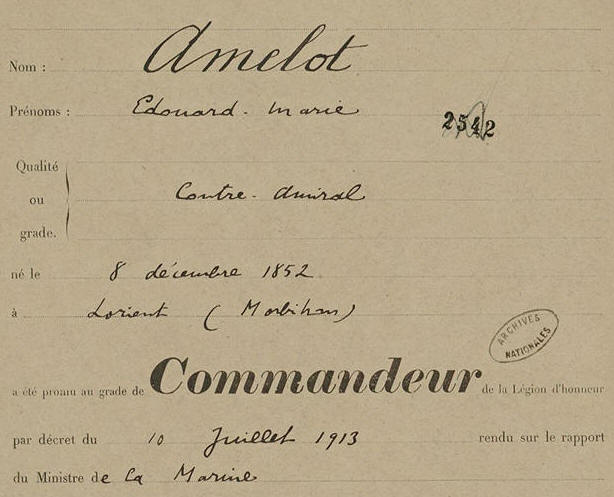 Nom : Amelot
Prénoms : Edouard-Marie
2542
Qualité
ou
grade.
Contre-Amiral
né le 8 décembre 1852
à Lorient (Morbihan)
ARCHIVES
NATIONALES
a été promu au grade de Commandeur de la Légion d'honneur
par décret du 10 Juillet 1913 rendu sur le rapport
du Ministre de la Marine